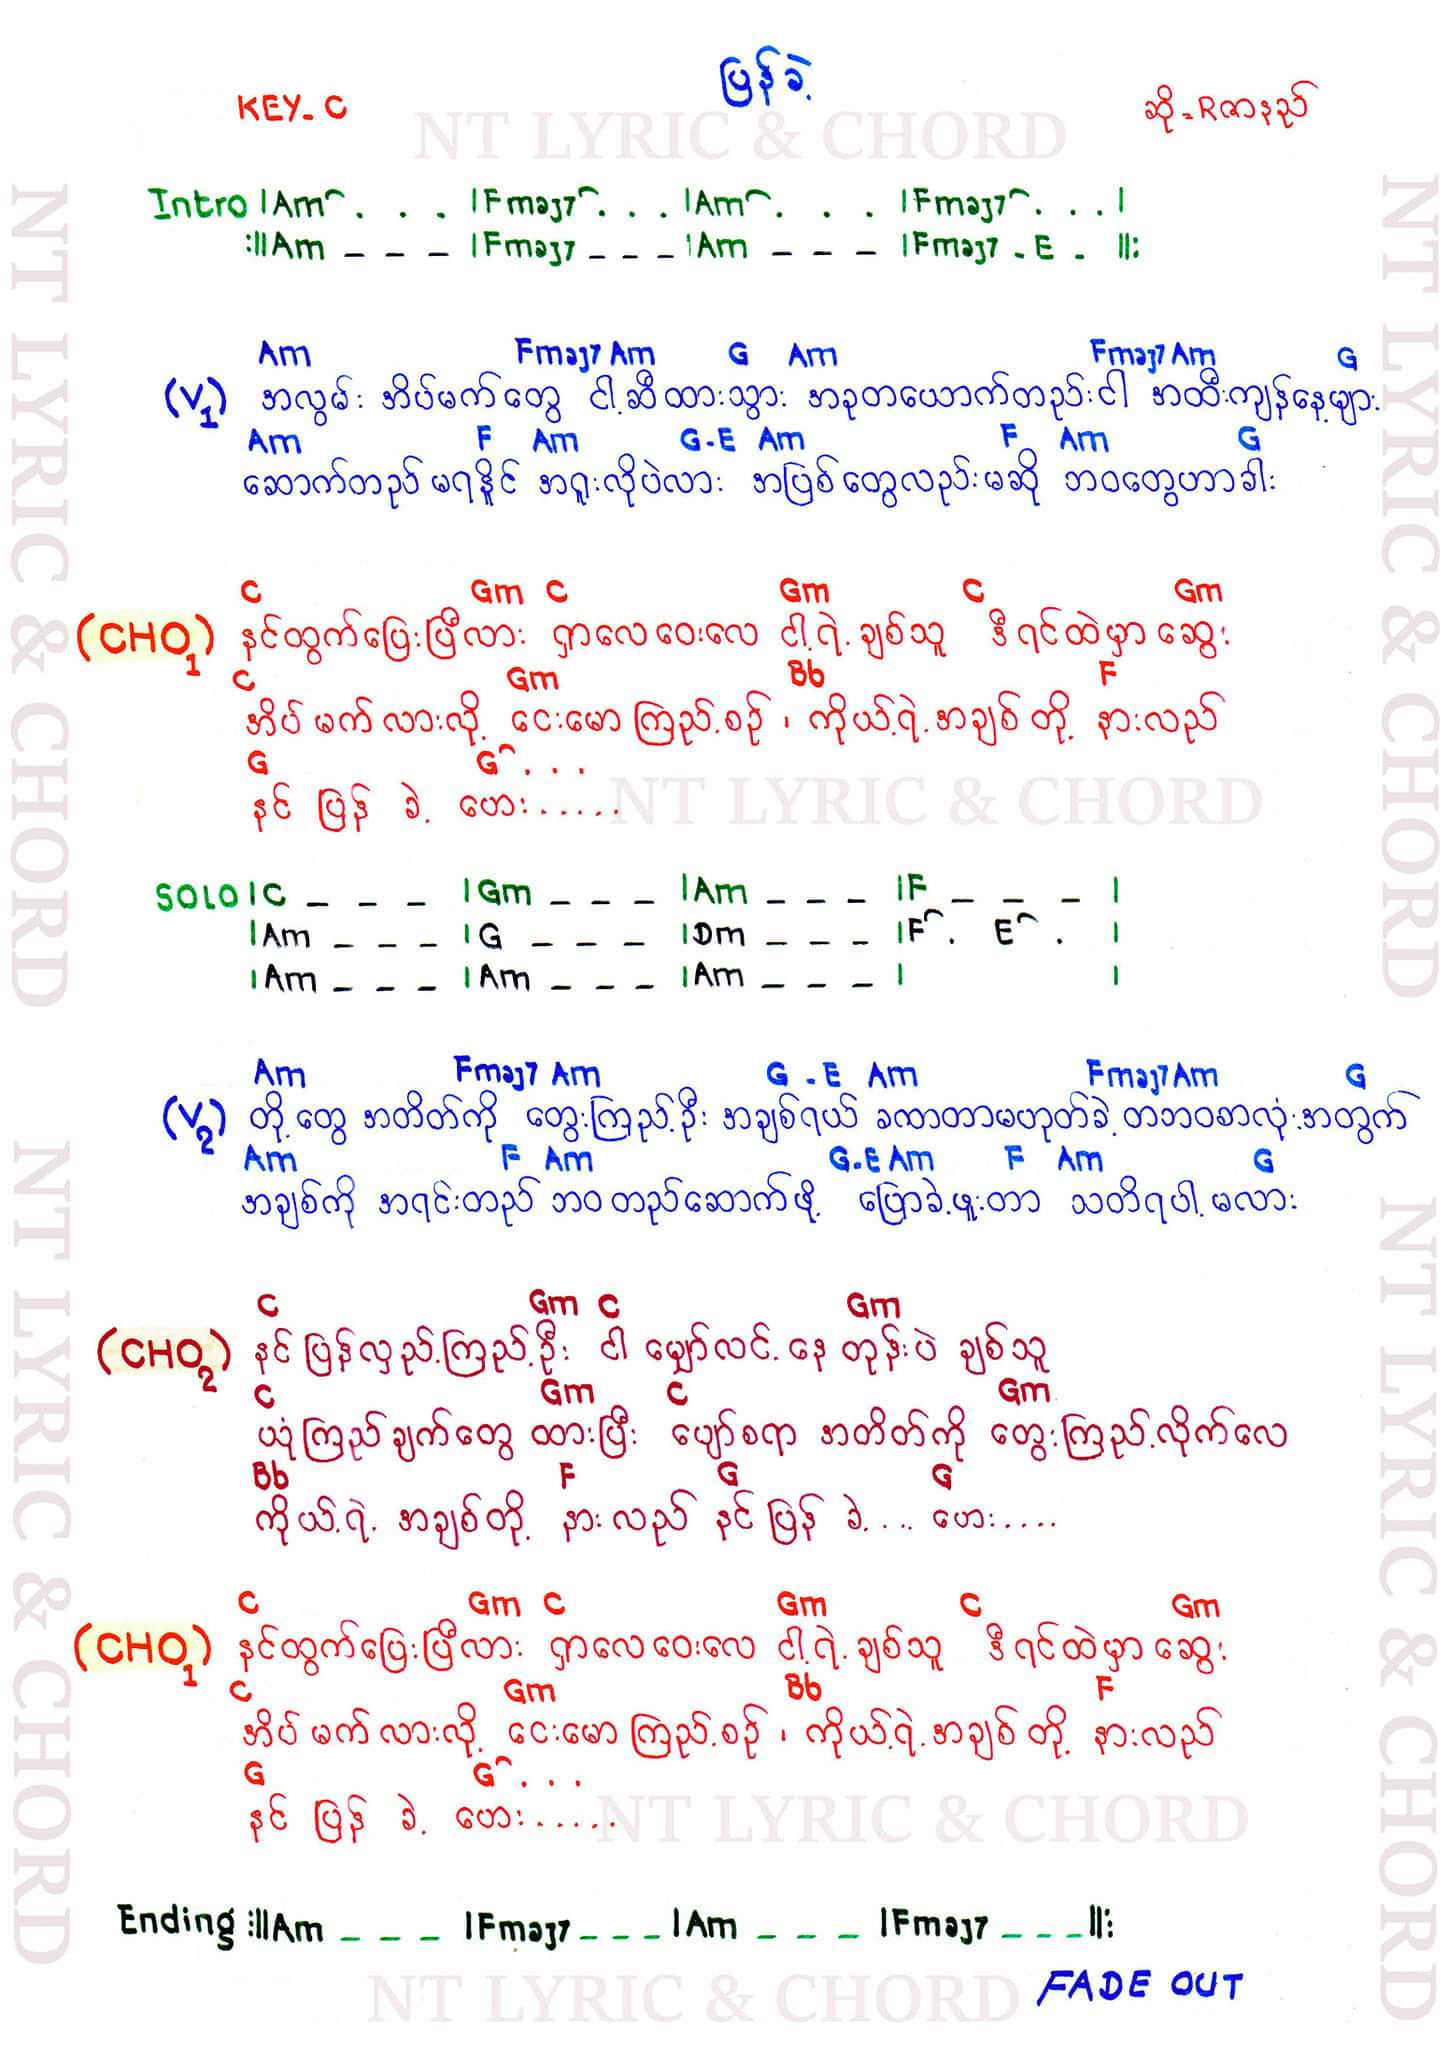 ပြန်ခဲ့
KEY - C
ဆို = Rဇာနည်
NT LYRIC & CHORD
Intro |Am . . . |Fmaj7 . . . |Am . . . |Fmaj7 . . . |
:||Am _ _ _ |Fmaj7 _ _ _ |Am _ _ _ |Fmaj7 - E - ||:
Am Fmaj7 Am G Am Fmaj7 Am G
(V1) အလွမ်း အိပ်မက်တွေ ငါ့ဆီထားသွား အခုတယောက်တည်းငါ အထီးကျန်နေ့များ
Am F Am G-E Am F Am G
ဆောက်တည် မရနိူင် အရူးလိုပဲလား အပြစ်တွေလည်းမဆို ဘဝတွေဟာခါး
C Gm C Gm C Gm
(CHO1) နင်ထွက်ပြေးပြီလား ဝှာလေဝေးလေ ငါ့ရဲ့ချစ်သူ ဒီရင်ထဲမှာဆွေး
C Gm Bb F
အိပ်မက်လားလို့ ငေးမောကြည့်စဉ် ၊ ကိုယ့်ရဲ့အချစ်တို့ နားလည်
G G . . .
နင် ပြန် ခဲ့ ဟေး.....
NT LYRIC & CHORD
SOLO |C _ _ _ |Gm _ _ _ |Am _ _ _ |F _ _ _ |
|Am _ _ _ |G _ _ _ |Dm _ _ _ |F . E . |
|Am _ _ _ |Am _ _ _ |Am _ _ _ | |
Am Fmaj7 Am G - E Am Fmaj7 Am G
(V2) တို့တွေ အတိတ်ကို တွေးကြည့်ဦး အချစ်ရယ် ခဏတာမဟုတ်ခဲ့ တဘဝစာလုံးအတွက်
Am F Am G-E Am F Am G
အချစ်ကို အရင်းတည် ဘဝတည်ဆောက်ဖို့ ပြောခဲ့ဖူးတာ သတိရပါ့မလား
C Gm C Gm
(CHO2) နင်ပြန်လှည့်ကြည့်ဦး ငါ မျှော်လင့်နေတုန်းပဲ ချစ်သူ
C Gm C Gm
ယုံကြည်ချက်တွေ ထားပြီး ပျော်စရာ အတိတ်ကို တွေးကြည့်လိုက်လေ
Bb F G G
ကိုယ့်ရဲ့ အချစ်တို့ နားလည် နင်ပြန် ခဲ့.... ဟေး....
C Gm C Gm C Gm
(CHO1) နင်ထွက်ပြေးပြီလား ဝှာလေဝေးလေ ငါ့ရဲ့ချစ်သူ ဒီရင်ထဲမှာဆွေး
C Gm Bb F
အိပ်မက်လားလို့ ငေးမောကြည့်စဉ် ၊ ကိုယ့်ရဲ့အချစ်တို့ နားလည်
G G . . .
နင် ပြန် ခဲ့ ဟေး.....
NT LYRIC & CHORD
Ending :||Am _ _ _ |Fmaj7 _ _ _ |Am _ _ _ |Fmaj7 _ _ _ ||:
NT LYRIC & CHORD
FADE OUT
NT LYRIC & CHORD
NT LYRIC & CHORD
NT LYRIC & CHORD
NT LYRIC & CHORD